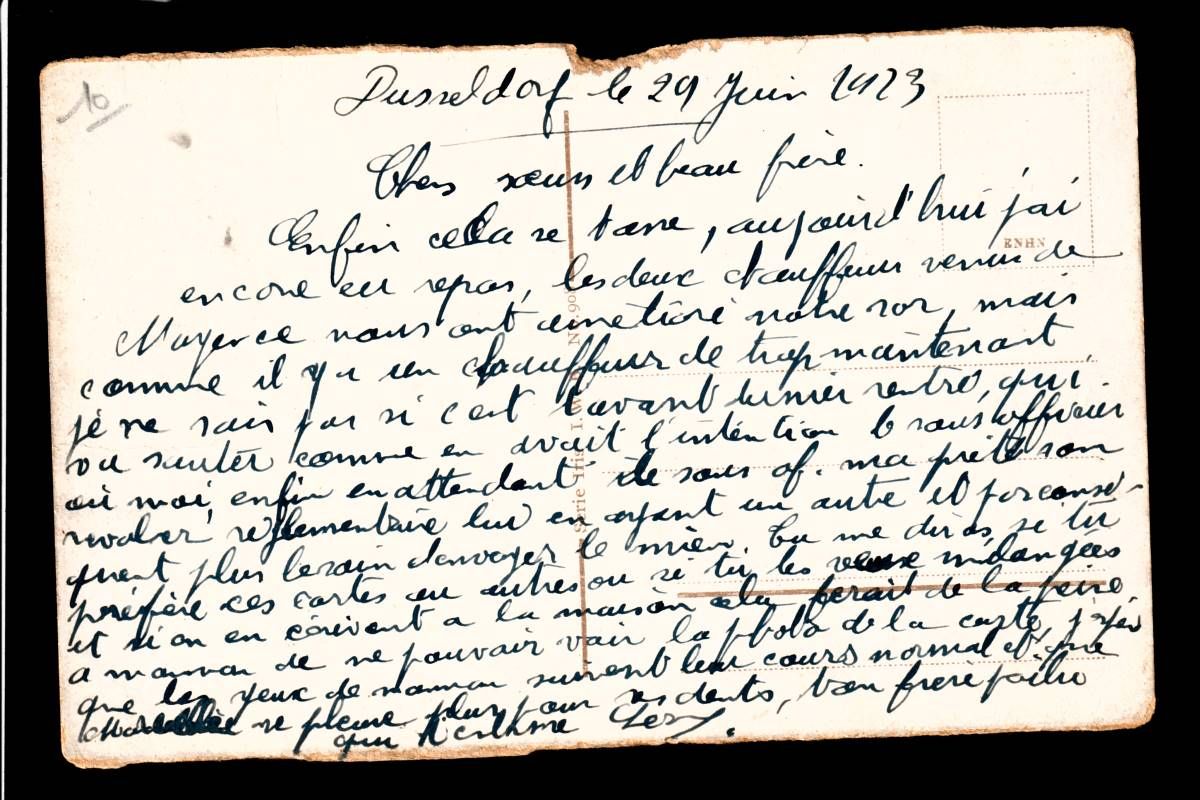 10
Dusseldorf le 29 Juin 1923
Chers sœurs et beau frère.
Enfin cela se tasse, aujourd'hui j'ai
encore eu repos, les deux chauffeurs venus de
Mayence nous ont amélioré notre sor, mais
comme il y a un chauffeur de trop maintenant
je ne sais pas si c'est l'avant dernier rentré, qui
va sauter comme en avait l'intention le sous officier
ou moi, enfin en attendant le sous of. ma prêté son
revolver réglementaire lui en ayant un autre et par consé-
quent plus besoin d'envoyer le mien. Tu me diras, si tu
préfère ces cartes ou autres ou si tu les veux mélangées
et si on en écrivent a la maison cela ferait de la peine
a maman de ne pouvoir voir la photo de la carte, j'espère
que les yeux de maman suivent leur cours normal et que
ne pleure plus pour ses dents, ton frère
qui t'estime
ENHN
Série Iris